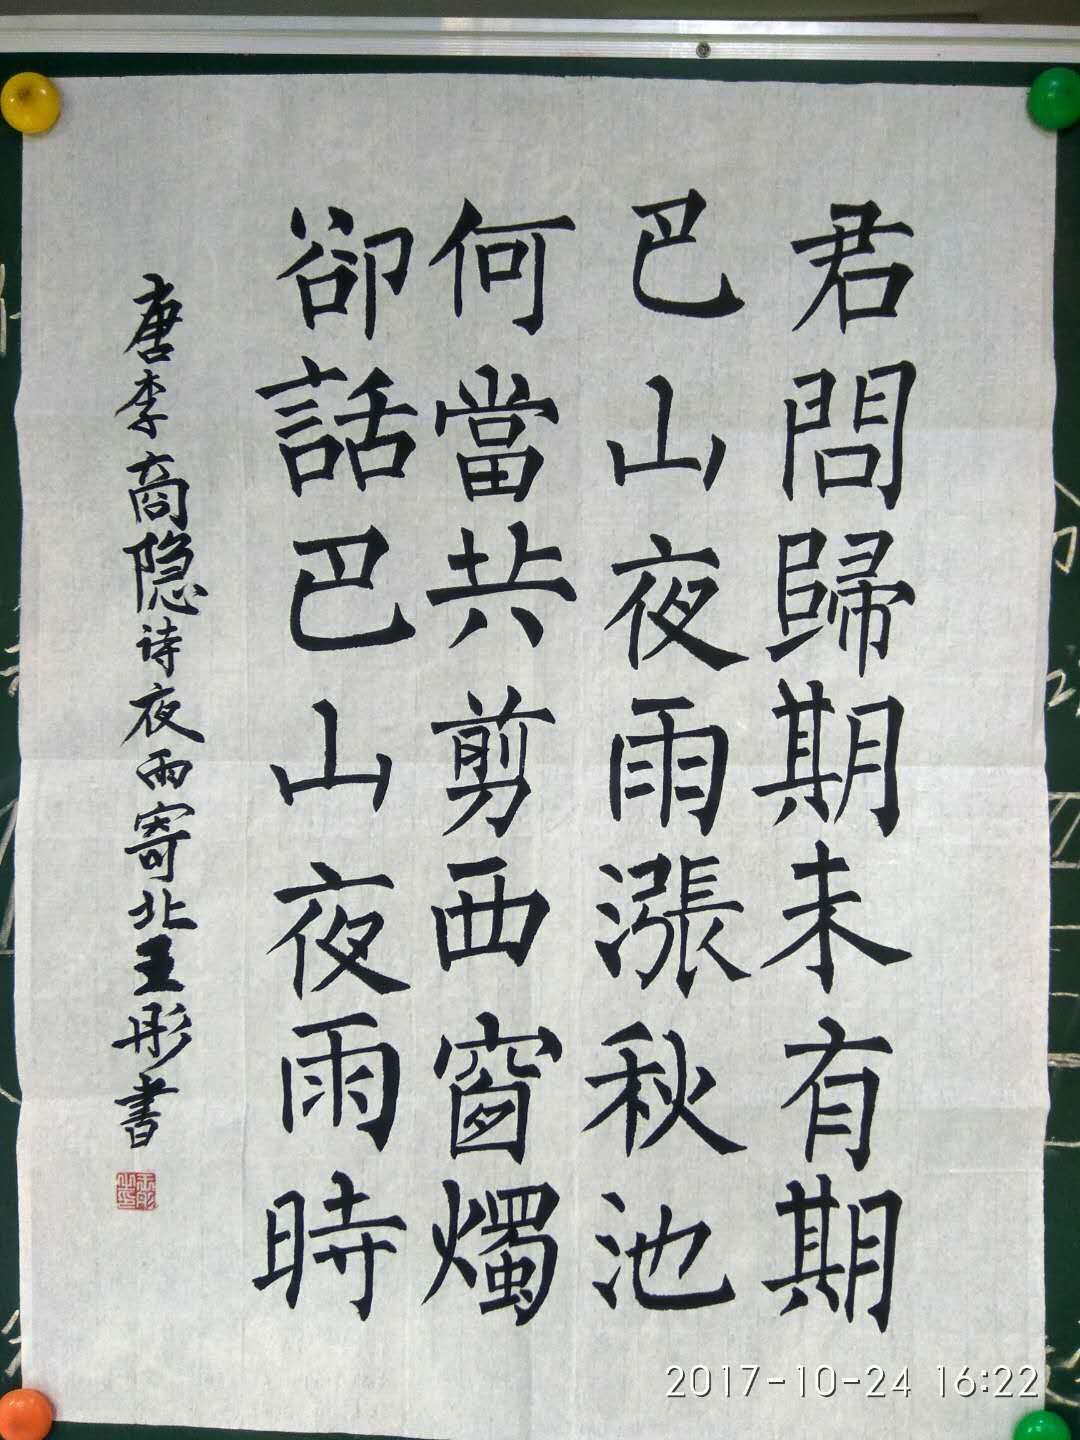 君問歸期未有期
巴山夜雨漲秋池
何當共剪西窗燭
卻話巴山夜雨時
唐李商隐诗夜雨寄北王彤書
2017-10-24 16:22